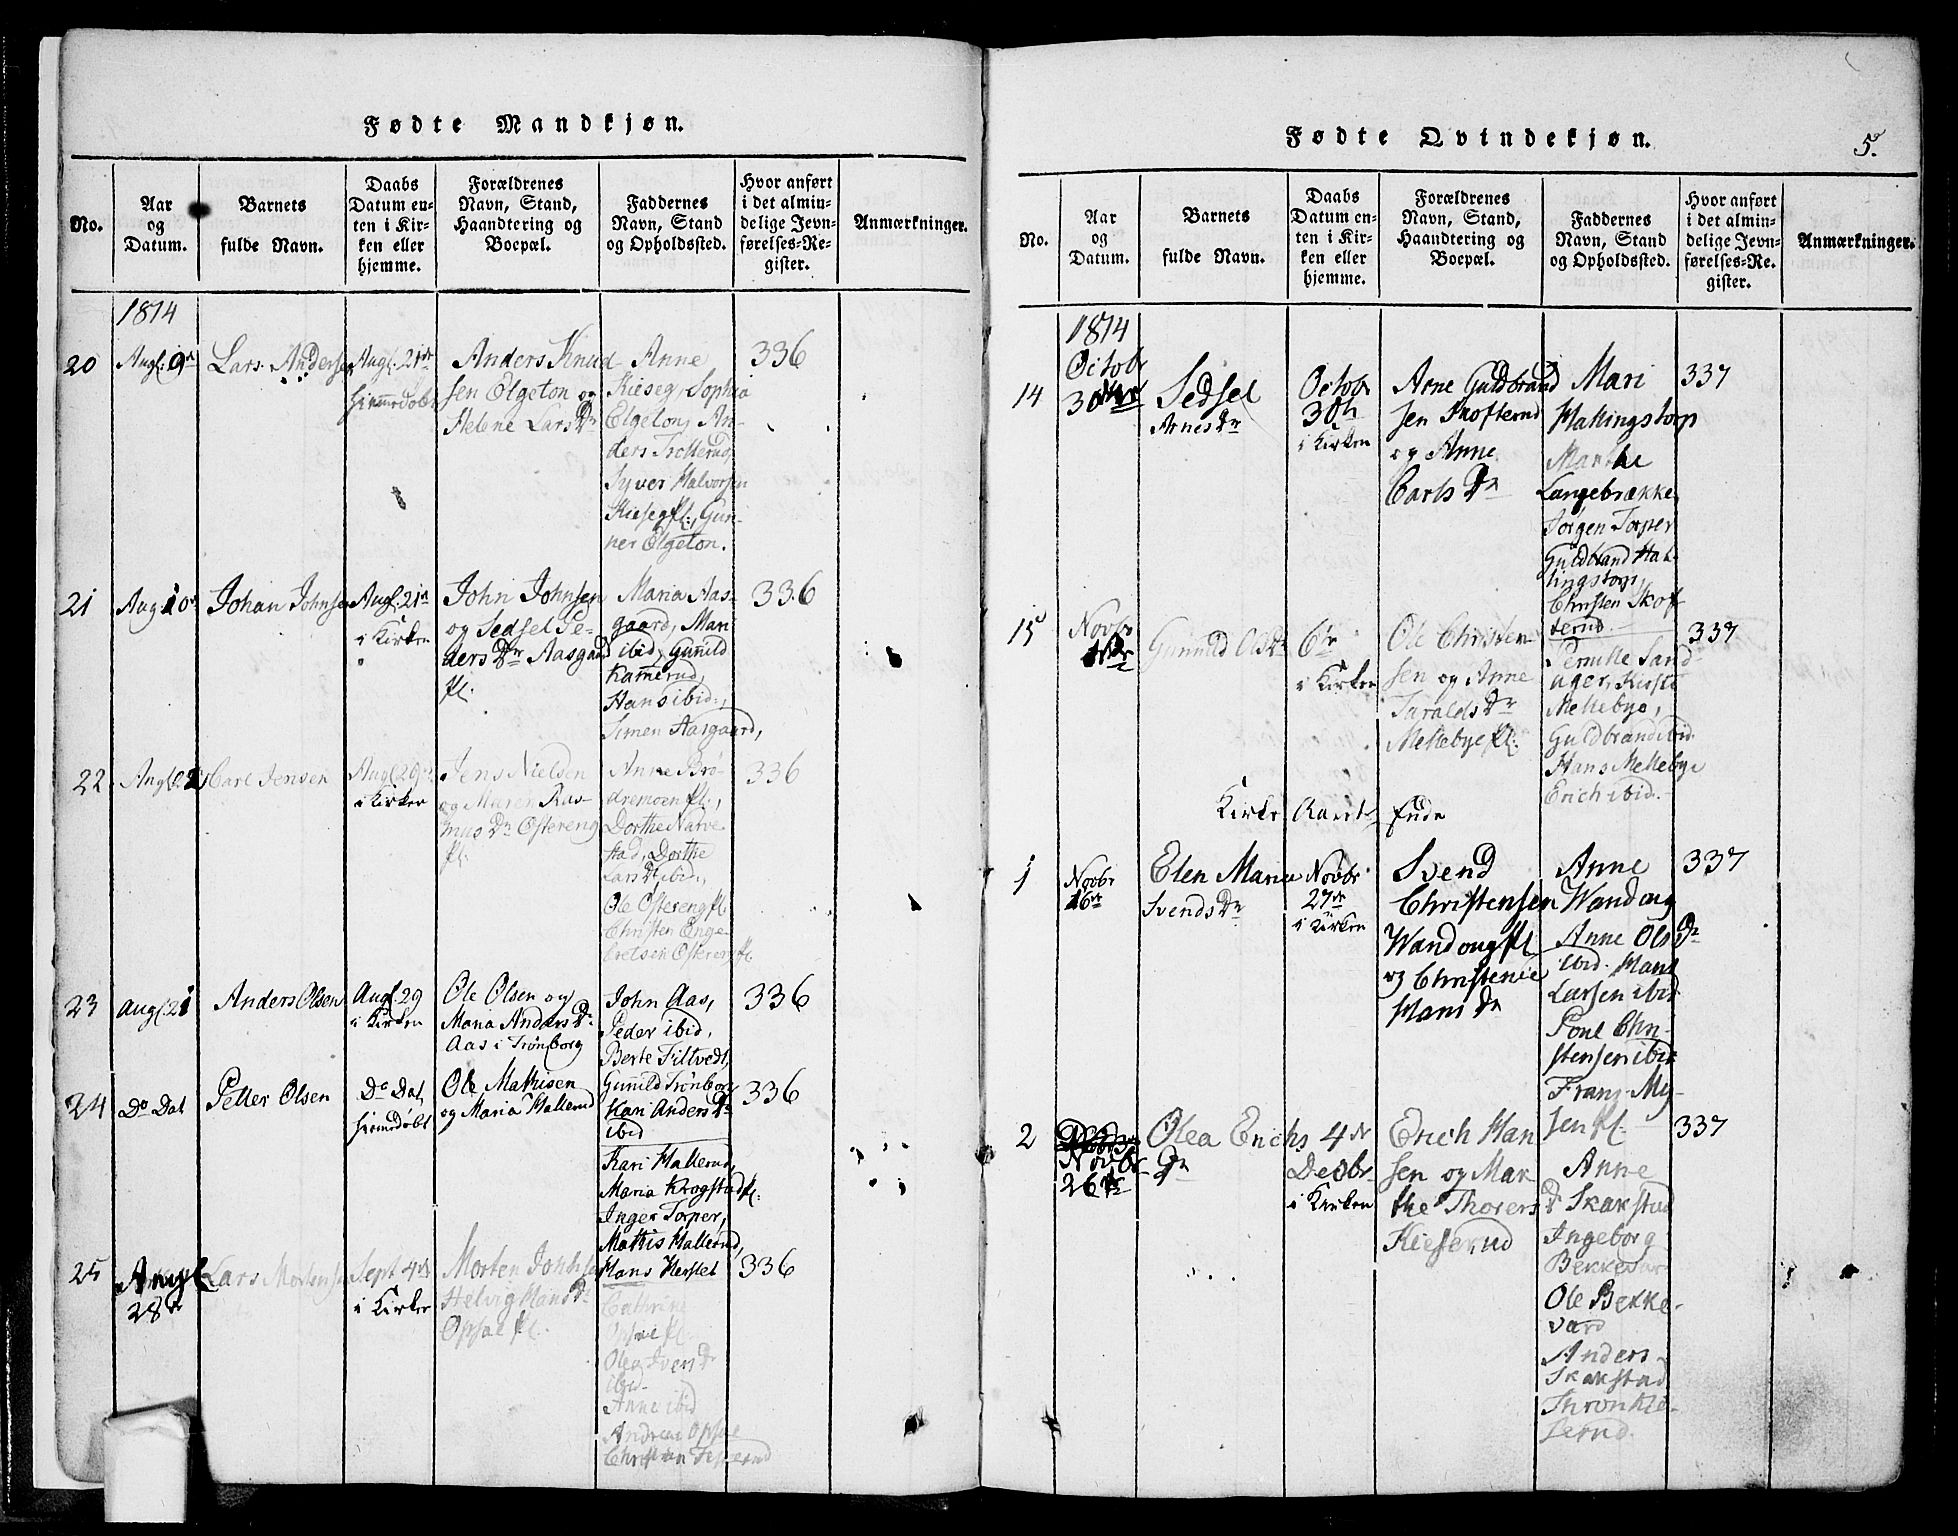 Fødte Mandkjøn.
No.
Aar
og
Datum.
Barnets
fulde Navn.
Daabs
Datum en-
ten i Kir-
ken eller
hjemme.
Forældrenes
Navn, Stand,
Haandtering og
Boepæl.
Faddernes
Navn, Stand
og Opholdssted.
Hvor anført
i det almin-
delige Jevn-
førelses-Re-
gister.
Anmærkninger.
1814
20
Augl. 9de
Lars Andersen
Augl. 21de
hiemedøbt
Anders Knud-
sen Elgeton og
Helene Lars Dr
Anne
Kieseg, Sophia
Elgeton, An-
ders Trollerud,
Syver Halvorsen
Kieseg fl., Gun-
ner Elgeton.
336
21
Aug 10
Johan Johnsen
Augl. 21
i Kirken
John Johnsen
og Sedsel Pe-
ders Dr Aasgaard
fl.
Maria Aas-
gaard, Mari
ibid, Gunild
Kamerud,
Hans ibid:,
Simen Aasgaard,
336
22
Carl Jensen
i Kirken
Jens Nielsen
og Maren Ras-
mus Dr Østereng
fl.
Anne Brø-
dremoen fl.,
Dorthe Narve-
stad, Dorthe
Lars Dr ibid,
Ole Østereng fl.
Christen Enge-
bretsen Østereng fl.
336
23
Augl 21
Anders Olsen
Augl. 29
i Kirken
Ole Olsen og
Maria Anders Dr
Aas i Trønborg
John Aas,
Peder ibid,
Berte Filtvedt,
Gunild Trønborg
Kari Anders Dr
ibid
336
24
Do Dat
Petter Olsen
Do Dat
hiemedøbt
Ole Mathisen
og Maria Hallerud
Kari Hallerud,
Maria Krogstad fl.
Inger Torper,
Mathis Hallerud,
Hans Herstet
336
25
Augl
28de
Lars Mortensen
Sept 4de
i Kirken
Morten Johnsen
Helvig Hans Dr
Opsal fl.
Cathrine
Opsal fl.
Olea Ivers Dr
ibid.
Anne ibid
Andreas Opsal
Christian
336
Fødte Qvindekjøn.
5.
No.
Aar
og
Datum.
Barnets
fulde Navn.
Daabs
Datum en-
ten i Kir-
ken eller
hjemme.
Forældrenes
Navn, Stand,
Haandtering og
Boepæl.
Faddernes
Navn, Stand
og Opholdssted.
Hvor anført
i det almin-
delige Jevn-
førelses-Re-
gister.
Anmærkninger.
1814
14
Octobr
Sedsel
Arnes Dr
Octobr
30te
i Kirken
Arne Guldbrand
sen Skofterud
og Anne
Carls Dr
Mari
Hallingstorp
Marthe
Langebrække
Jørgen Torper
Guldbrand Hal-
lingstorp,
Christen Skof-
terud.
337
15
Novbr
Gunnild Ols Dr
6te
i Kirken
Ole Christen-
sen og Anne
Taralds Dr
Mellebye fl.
Pernille Sand-
ager, Kirsti
Mellebye,
Guldbrand ibid.
Hans Mellebye
Erich ibid.
337
Kirke Aarets Ende
1
Novbr
16de
Elen Maria
Svends Dr
Novbr
27de
i Kirken
Svend
Christensen
Wandoug fl
og Christenie
Hans Dr
Anne
Wandoug
Anne Ols Dr
ibid. Hans
Larsen ibid
Poul Chri-
stensen ibid
Franz My-
sen fl.
337
2
Novbr
26de
Olea Erichs
Dr
4de
Decbr
i Kirken
Erich Han
sen og Mar
the Thorers
Kieserud
Anne
Dr Skakstad
Ingeborg
Bekkevar
Ole Bekke-
vard
Anders
Skakstad
Thron Kie-
serud.
337